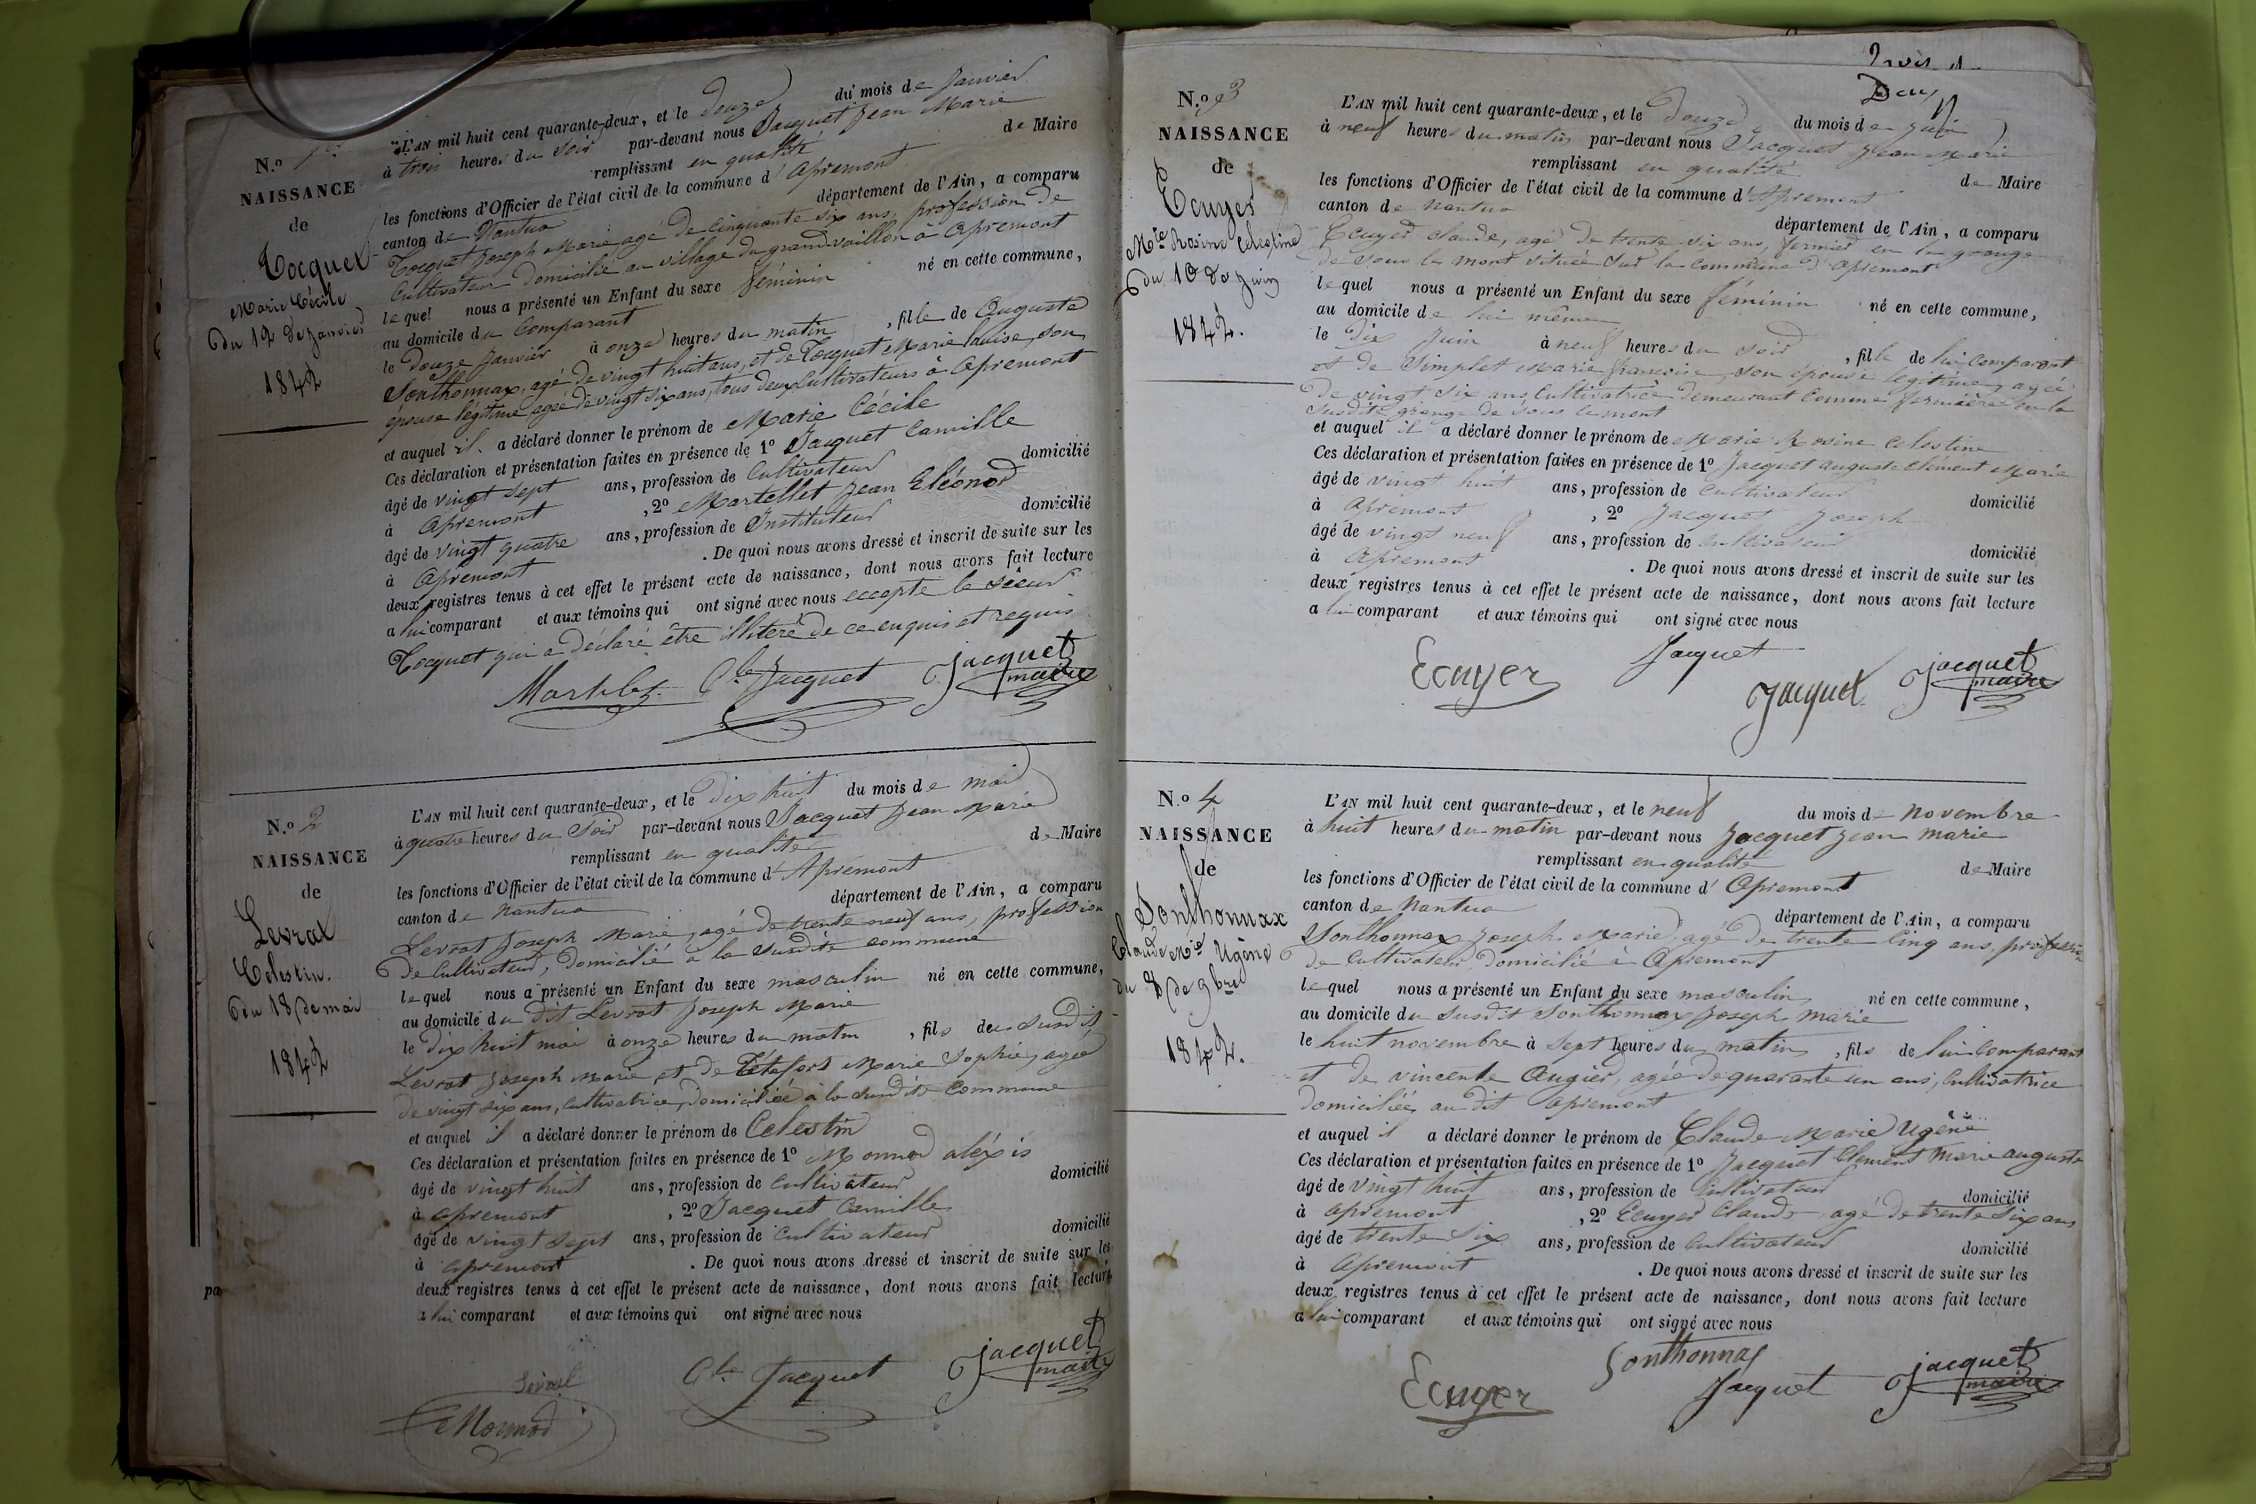 N.o 1er
NAISSANCE
de
Tocquet
Marie Cécile
du 12 de janvier
1842
L'AN mil huit cent quarante-deux, et le douze du mois de Janvier
à trois heures du soir par-devant nous Jacquet Jean Marie
remplissant en qualité de Maire
les fonctions d'Officier de l'état civil de la commune d'Apremont
canton de Nantua département de l'Ain, a comparu
Tocquet Joseph Marie agé de cinquante six ans, profession de
Cultivateur domicilié au village du grandvaillon à Apremont
lequel nous a présenté un Enfant du sexe féminin né en cette commune,
au domicile du Comparant
le douze Janvier à onze heures du matin, fille de Auguste
Sonthonnax, agé de vingt huit ans, et de Tocquet Marie louise, son
épouse légitime, agée de vingt six ans, tous deux Cultivateurs à Apremont
et auquel il a déclaré donner le prénom de Marie Cécile
Ces déclaration et présentation faites en présence de 1º Jacquet Camille
âgé de vingt sept ans, profession de Cultivateur domicilié
à Apremont, 2º Martellet Jean Eléonor
âgé de vingt quatre ans, profession de Instituteur domicilié
à Apremont. De quoi nous avons dressé et inscrit de suite sur les
deux registres tenus à cet effet le présent acte de naissance, dont nous avons fait lecture
a lui comparant et aux témoins qui ont signé avec nous eccepté le sieur
Tocquet qui a déclaré être illitéré de ce enquis et requis
Martelet Cle Jacquet Jacquet
maire
N.o 2
NAISSANCE
de
Levrat
Celestin.
du 18 de mai
1842
L'AN mil huit cent quarante-deux, et le dix huit du mois de mai
à quatre heures du Soir par-devant nous Jacquet Jean Marie
remplissant en qualité de Maire
les fonctions d'Officier de l'état civil de la commune d'Apremont
canton de Nantua département de l'Ain, a comparu
Levrat Joseph Marie, agé de trente neuf ans, profession
de Cultivateur, domicilié à la susdite commune
lequel nous a présenté un Enfant du sexe masculin né en cette commune,
au domicile du dit Levrat Joseph Marie
le dix huit mai à onze heures du matin, fils du susdit
Levrat Joseph Marie et de Tétafort Marie Sophie, agée
de vingt six ans, Cultivatrice, domiciliée à la susdite Commune
et auquel il a déclaré donner le prénom de Celestin
Ces déclaration et présentation faites en présence de 1º Monnod aléxis
âgé de vingt huit ans, profession de Cultivateur domicilié
à Apremont, 2º Jacquet Camille
âgé de vingt sept ans, profession de Cultivateur domicilié
à Apremont. De quoi nous avons dressé et inscrit de suite sur les
deux registres tenus à cet effet le présent acte de naissance, dont nous avons fait lecture
a lui comparant et aux témoins qui ont signé avec nous
Levrat Cle Jacquet Jacquet
maire
Monnod
pa
Deux
N.o 3
NAISSANCE
de
Ecuyer
Mie Rosine Celestine
du 10 de Juin
1842.
L'AN mil huit cent quarante-deux, et le douze du mois de Juin
à neuf heures du matin par-devant nous Jacquet Jean Marie
remplissant en qualité de Maire
les fonctions d'Officier de l'état civil de la commune d'Apremont
canton de Nantua département de l'Ain, a comparu
Ecuyer Claude, agé de trente six ans, fermier en la grange
de sous le mont située sur la Commune d'Apremont
lequel nous a présenté un Enfant du sexe féminin né en cette commune,
au domicile de lui même
le dix Juin à neuf heures du soir, fille de lui Comparant
et de Simplet Marie françoise, son épouse légitime, agée
de vingt six ans, Cultivatrice demeurant comme fermière en la
susdite grange de sous le mont
et auquel il a déclaré donner le prénom de Marie Rosine Celestine
Ces déclaration et présentation faites en présence de 1º Jacquet auguste Clement Marie
âgé de vingt huit ans, profession de Cultivateur domicilié
à Apremont, 2º Jacquet Joseph
âgé de vingt neuf ans, profession de Cultivateur domicilié
à Apremont. De quoi nous avons dressé et inscrit de suite sur les
deux registres tenus à cet effet le présent acte de naissance, dont nous avons fait lecture
a lui comparant et aux témoins qui ont signé avec nous
Ecuyer Jacquet Jacquet Jacquet
maire
N.o 4
NAISSANCE
de
Sonthonnax
Claude Mie Ugène
du 8 de 9bre
1842.
L'AN mil huit cent quarante-deux, et le neuf du mois de novembre
à huit heures du matin par-devant nous Jacquet Jean Marie
remplissant en qualité de Maire
les fonctions d'Officier de l'état civil de la commune d'Apremont
canton de Nantua département de l'Ain, a comparu
Sonthonnax Joseph Marie, agé de trente Cinq ans, profession
de Cultivateur domicilié à Apremont
lequel nous a présenté un Enfant du sexe masculin né en cette commune,
au domicile du Susdit Sonthonnax Joseph Marie
le huit novembre à sept heures du matin, fils de lui Comparant
et de vincente Augier, agée de quarante un ans, Cultivatrice
domiciliée au dit Apremont
et auquel il a déclaré donner le prénom de Claude Marie Ugène
Ces déclaration et présentation faites en présence de 1º Jacquet Clement Marie auguste
âgé de vingt huit ans, profession de Cultivateur domicilié
à apremont, 2º Ecuyer Claude agé de trente six ans
âgé de trente six ans, profession de Cultivateur domicilié
à Apremont. De quoi nous avons dressé et inscrit de suite sur les
deux registres tenus à cet effet le présent acte de naissance, dont nous avons fait lecture
a lui comparant et aux témoins qui ont signé avec nous
Ecuyer Sonthonnax Jacquet Jacquet
maire